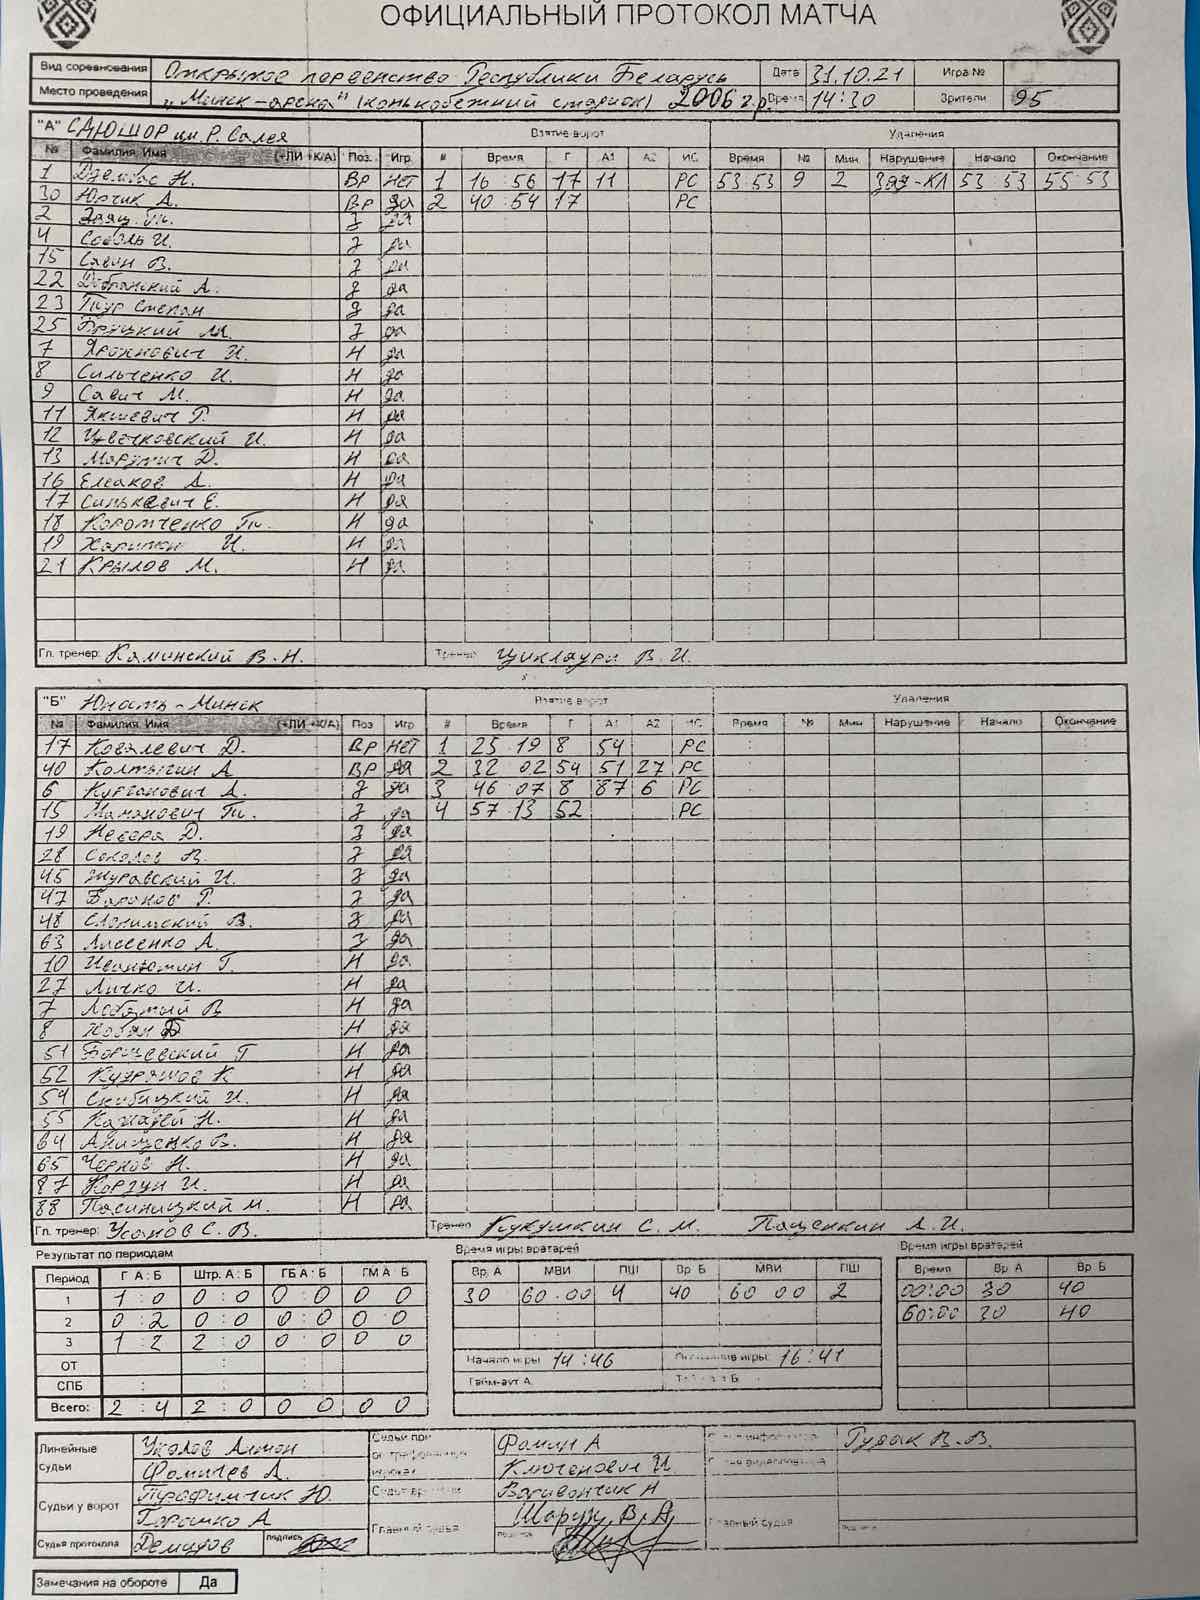 ОФИЦИАЛЬНЫЙ ПРОТОКОЛ МАТЧА
Вид соревнования Открытое первенство Республики Беларусь Дата 31.10.21 Игра №
Место проведения "Минск-арена" (конькобежный стадион) 2006 г.р. Время 14:30 Зрители 95
"А" СДЮШОР им. Р. Салея Взятие ворот Удаления
№ Фамилия Имя (+ЛИ +К/А) Поз. Игр # Время Г А1 А2 ИС Время № Мин. Нарушение Начало Окончание
1 Н. ВР НЕТ 1 16:56 17 11 РС 53:53 9 2 ЗАД-КЛ 53:53 55:53
30 Юрчик А. ВР да 2 40:54 17 РС
2 Заяц З да
4 Соболь И. З да
15 Савин В. З да
22 Добранский А. З да
23 Тур Степан З да
25 М. З да
7 Ярохнович И. Н да
8 Сильченко И. Н да
9 Савич М. Н да
11 Якшевич Г. Н да
12 Цветковский И. Н да
13 Марунич Д. Н да
16 Елсаков А. Н да
17 Синькевич Е. Н да
18 Коромченко Н да
19 И. Н да
21 Крылов М. Н да
Гл. тренер: Каминский В.Н. Тренер Циклаури В.И.
"Б" Юность-Минск Взятие ворот Удаления
№ Фамилия Имя (+ЛИ +К/А) Поз Игр # Время Г А1 А2 ИС Время № Мин Нарушение Начало Окончание
17 Ковалевич Д. ВР НЕТ 1 25:19 8 54 РС
40 Колтыгин А ВР да 2 32 02 54 51 27 РС
6 Курганович А. З да 3 46 07 8 87 6 РС
15 Маманович З да 4 57:13 52 РС
19 Невера Д. З да
28 Соколов В. З да
45 Журавский И. З да
47 Баранов Г. З да
48 Слонимский В. З да
63 Лисеенко А. З да
10 Г. Н да
27 Личко И. Н да
7 В Н да
8 Н да
51 Борщевский Г Н да
52 Кудряшов К Н да
54 Скибицкий И. Н да
55 Н. Н да
64 Анищенко В. Н да
65 Чернов Н. Н да
87 Корзун И. Н да
88 Пасиницкий М. Н да
Гл. тренер: Усанов С.В. Тренер Кукушкин С.М. Пащенкин А.И.
Результат по периодам Время игры вратарей Время игры вратарей
Период Г А : Б Штр. А : Б ГБ А : Б ГМ А : Б Вр. А МВИ ПШ Вр Б МВИ ПШ Время Вр А Вр Б
1 1 : 0 0 : 0 0 : 0 0 0 30 60:00 4 40 60 00 2 00:00 30 40
2 0 2 0 : 0 0 : 0 0 : 0 60:00 30 40
3 1 : 2 2 : 0 0 : 0 0 0
ОТ Начало игры 14:46 Окончание игры: 16:41
СПБ Тайм-аут А Тайм-аут Б
Всего: 2 : 4 2 : 0 0 0 0 0
Линейные судьи Уколов Антон Судьи при оштрафованных игроках Фомин А Судья информатор Гурак В.В.
Фомичев А. Ключенович И.
Судьи у ворот Трофимчик Ю. Судья времени Вагивончик А
Горошко А Главный судья Шарун В.А Главный судья
Судья протокола Демидов подпись подпись
Замечания на обороте Да